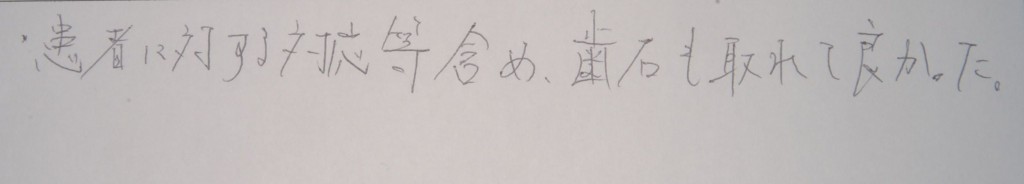 ・患者に対する対応等含め、歯石も取れて良かった。